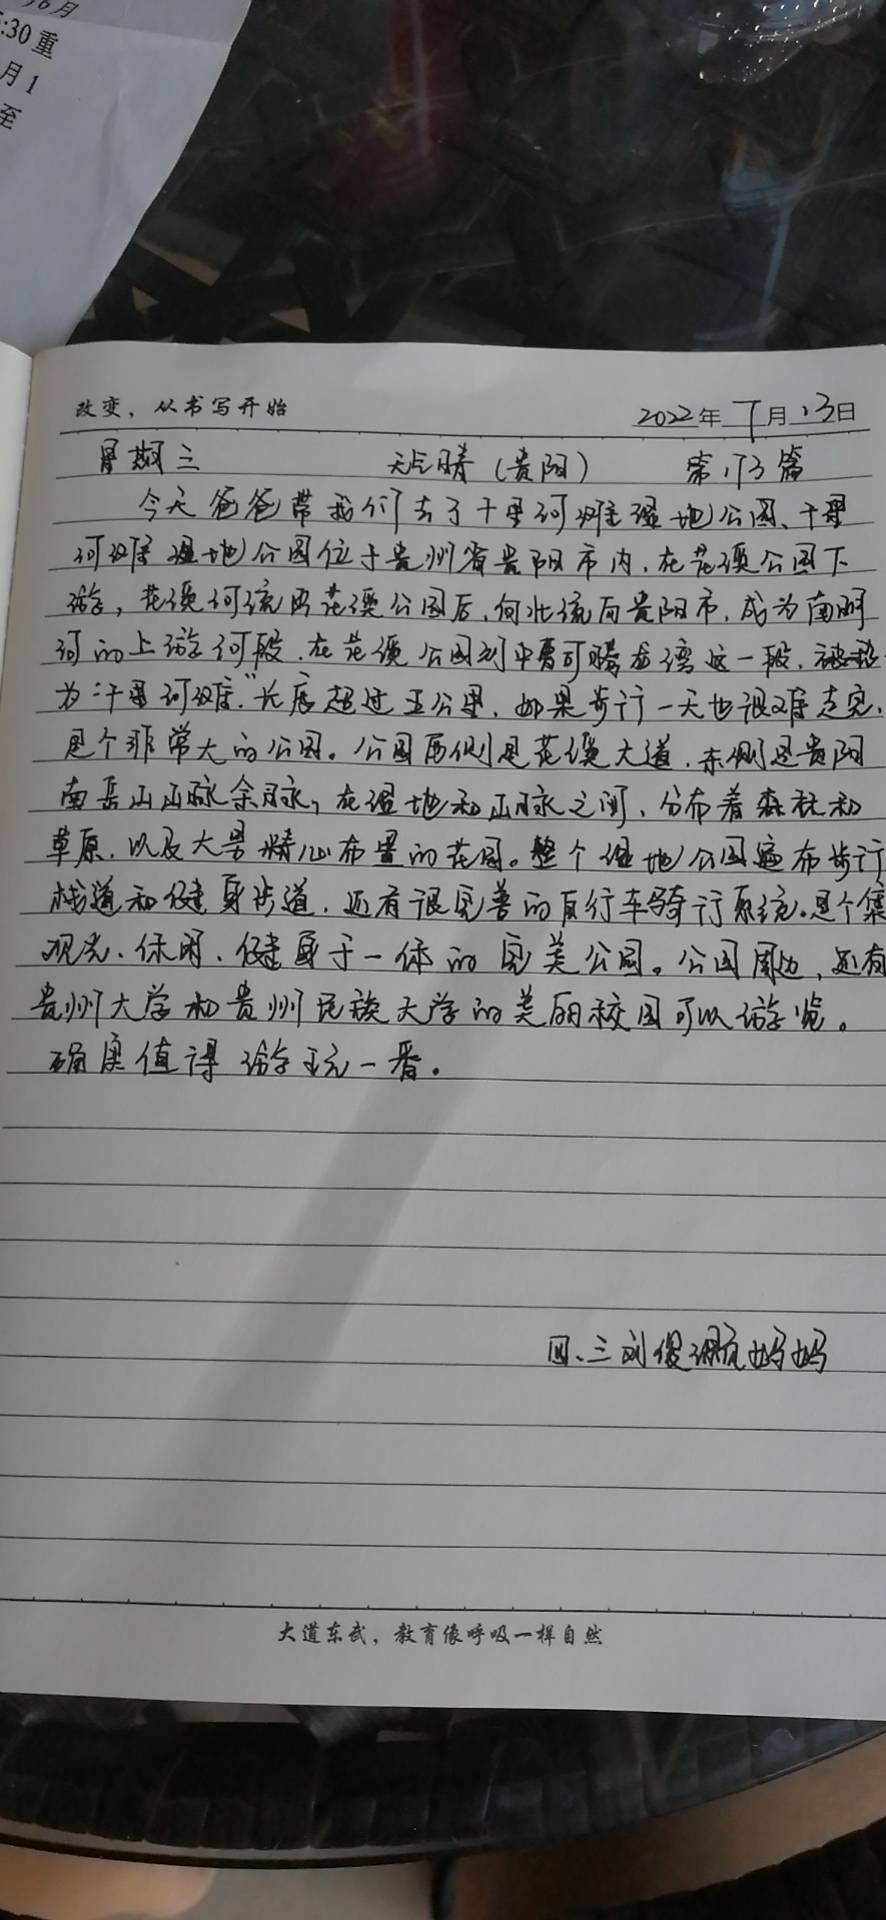 6月
:30重
月1
至
改变，从书写开始
2022年7月13日
星期三 天气晴（贵阳） 第173篇
今天爸爸带我们去了十里河滩湿地公园、十里
河滩湿地公园位于贵州省贵阳市内，在花溪公园下
游，花溪河流出花溪公园后，向北流向贵阳市，成为南明
河的上游河段．在花溪公园到中曹司腾龙湾这一段，被称
为“十里河滩”长度超过五公里，如果步行一天也很难走完，
是个非常大的公园。公园西侧是花溪大道，东侧是贵阳
南岳山山脉余脉，在湿地和山脉之间，分布着森林和
草原，以及大量精心布置的花园。整个湿地公园遍布步行
栈道和健身步道，还有很完善的自行车骑行系统。是个集
观光、休闲、健身于一体的完美公园。公园周边，还有
贵州大学和贵州民族大学的美丽校园可以游览。
确实值得游玩一番。
四、三刘俊 妈妈
大道东武，教育像呼吸一样自然